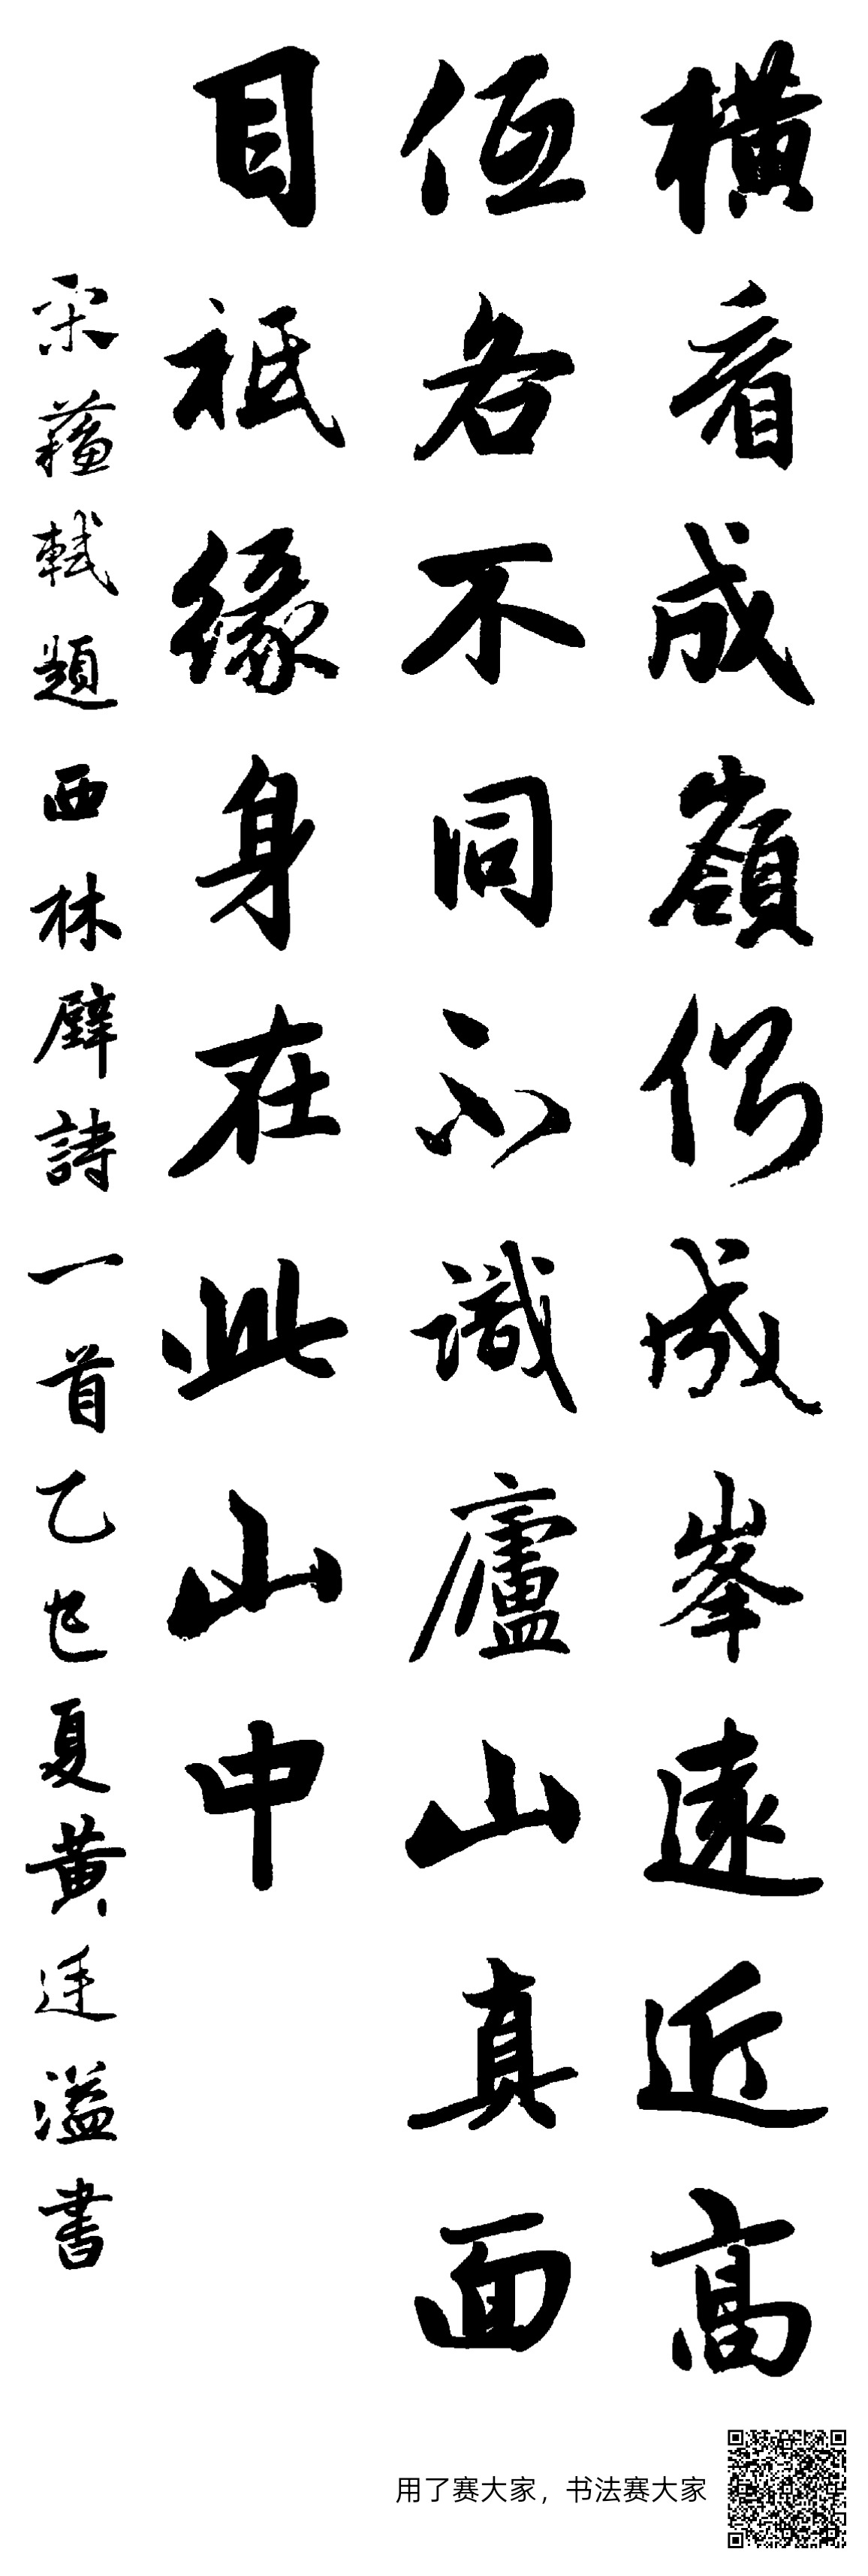 橫看成嶺側成峯遠近高
低各不同不識廬山真面
目祇緣身在此山中
宋蘓軾題西林壁詩一首乙巳夏黃廷溢書
用了赛大家，书法赛大家